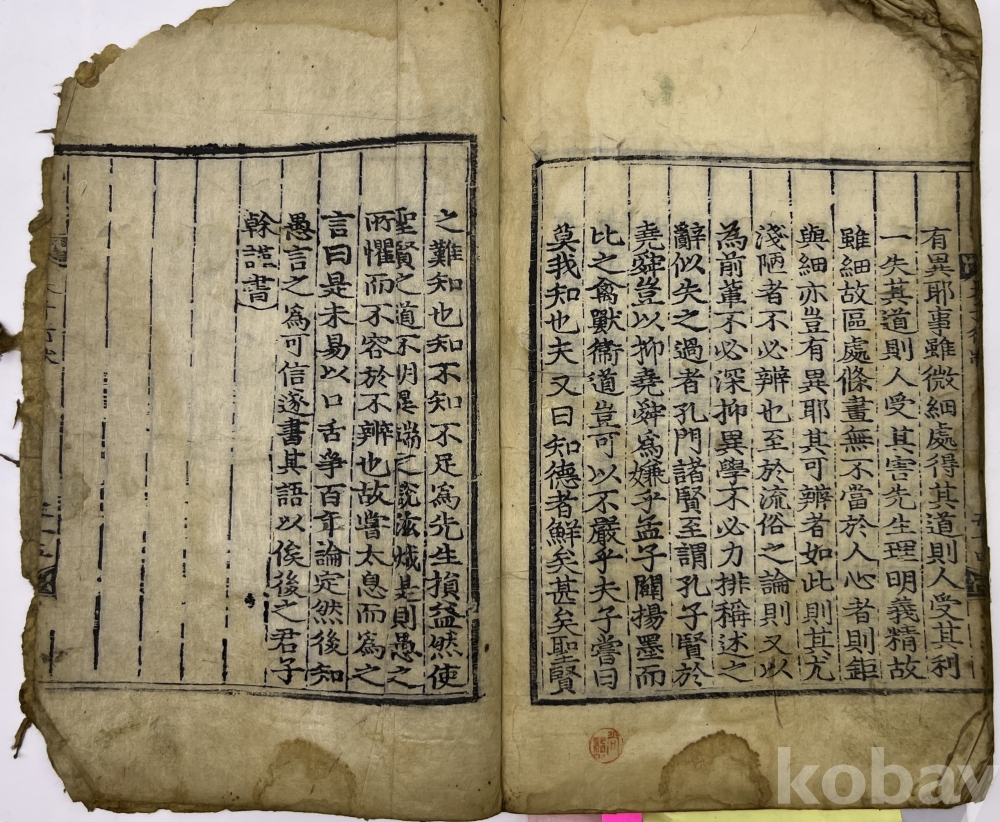 有異耶事雖微細處得其道則人受其利
一失其道則人受其害先生理明義精故
雖細故區處條畫無不當於人心者則鉅
與細亦豈有異耶其可辨者如此則其尤
淺陋者不必辨也至於流俗之論則又以
為前輩不必深抑異學不必力排稱述之
辭似失之過者孔門諸賢至謂孔子賢於
堯舜豈以抑堯舜為嫌乎孟子闢揚墨而
比之禽獸衛道豈可以不嚴乎夫子嘗曰
莫我知也夫又曰知德者鮮矣甚矣聖賢
之難知也知不知不足為先生損益然使
聖賢之道不明異端之說滋熾是則愚之
所懼而不容於不辨也故嘗太息而為之
言曰是未易以口舌爭百年論定然後知
愚言之為可信遂書其語以俟後之君子
榦謹書
kobay